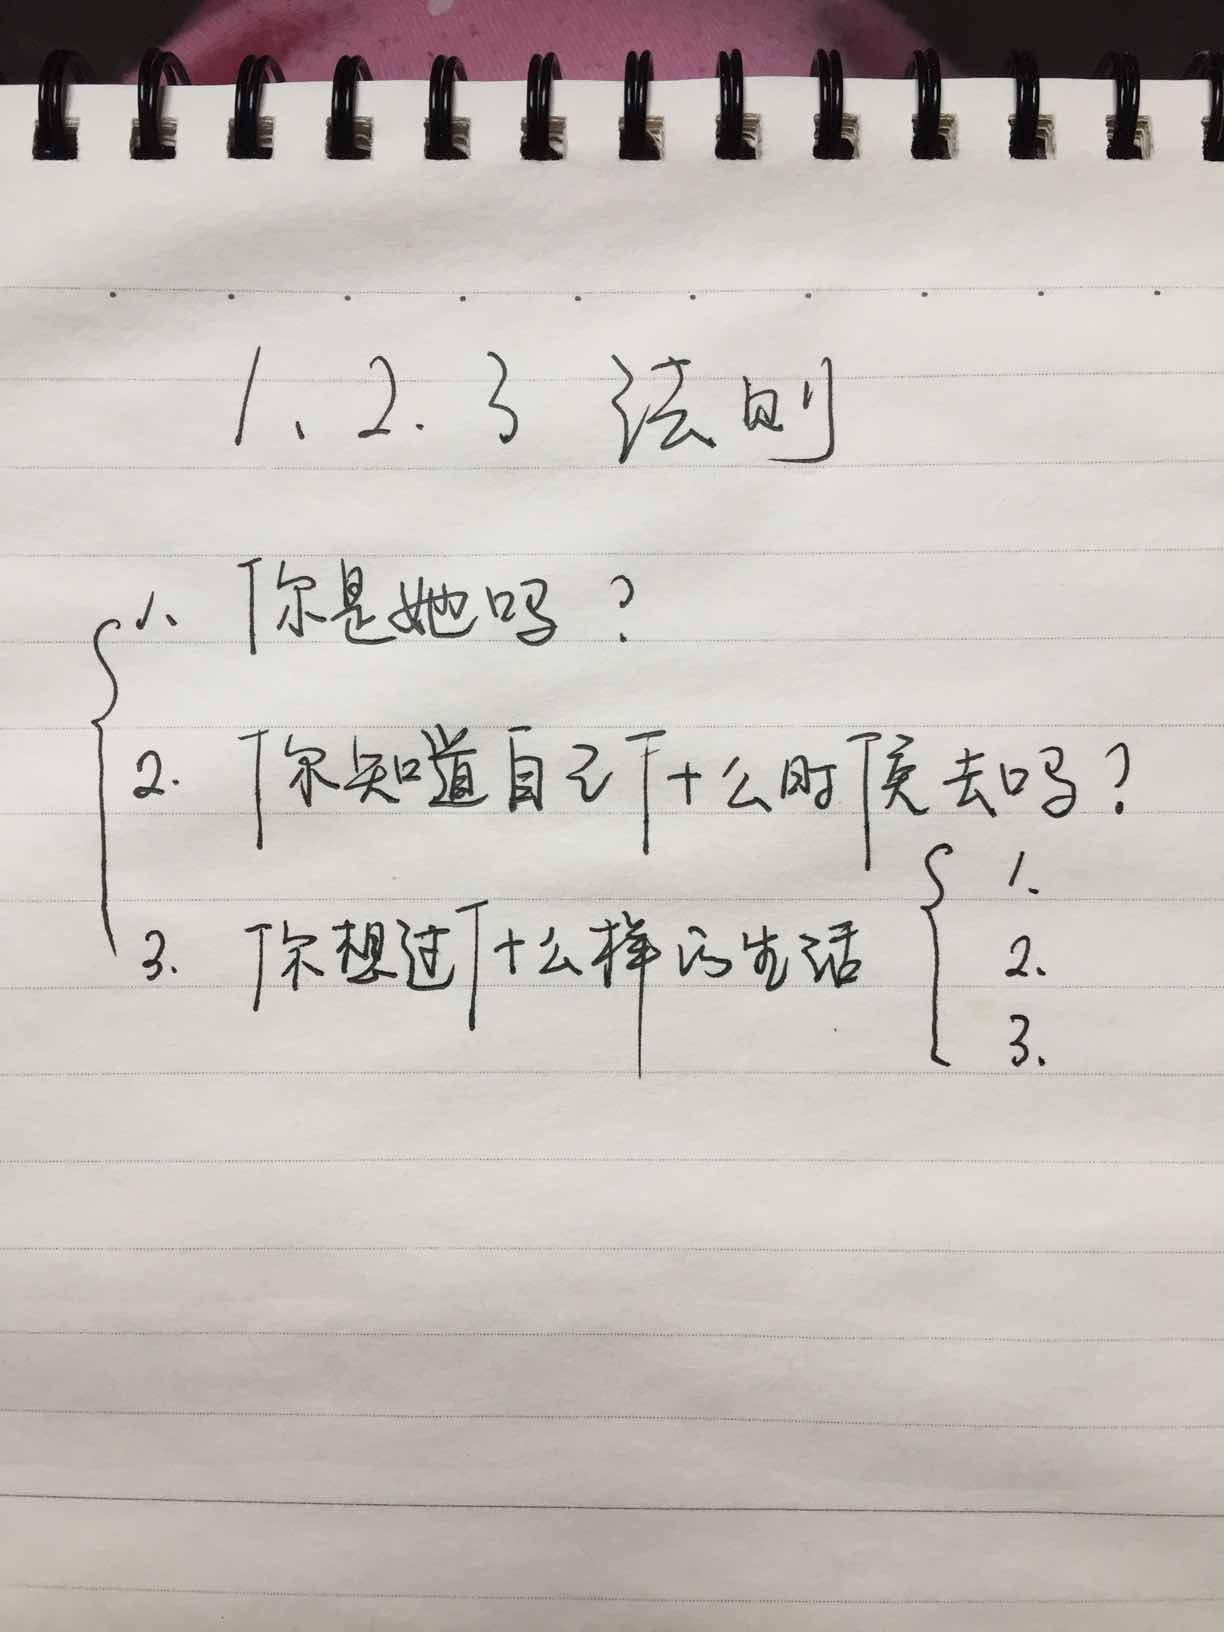 1、2.3 法则
1、你是她吗？
2. 你知道自己什么时候去吗？
3. 你想过什么样的生活
1.
2.
3.